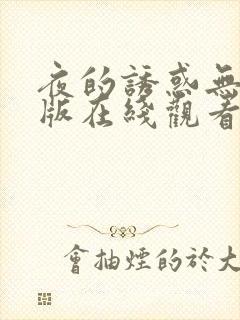 夜的誘惑無
版在綫觀看
會抽煙的於大